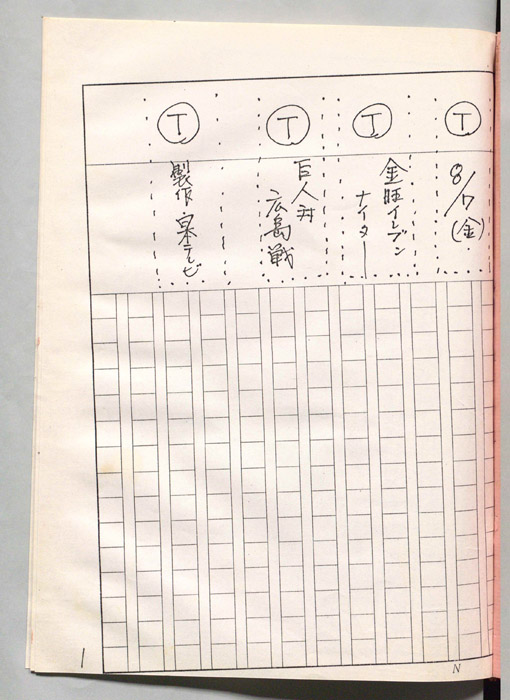 Ⓣ
8/7(金)
Ⓣ
金旺イレブン
ナイター
Ⓣ
巨人対
広島戦
Ⓣ
製作 日本テレビ
1
N